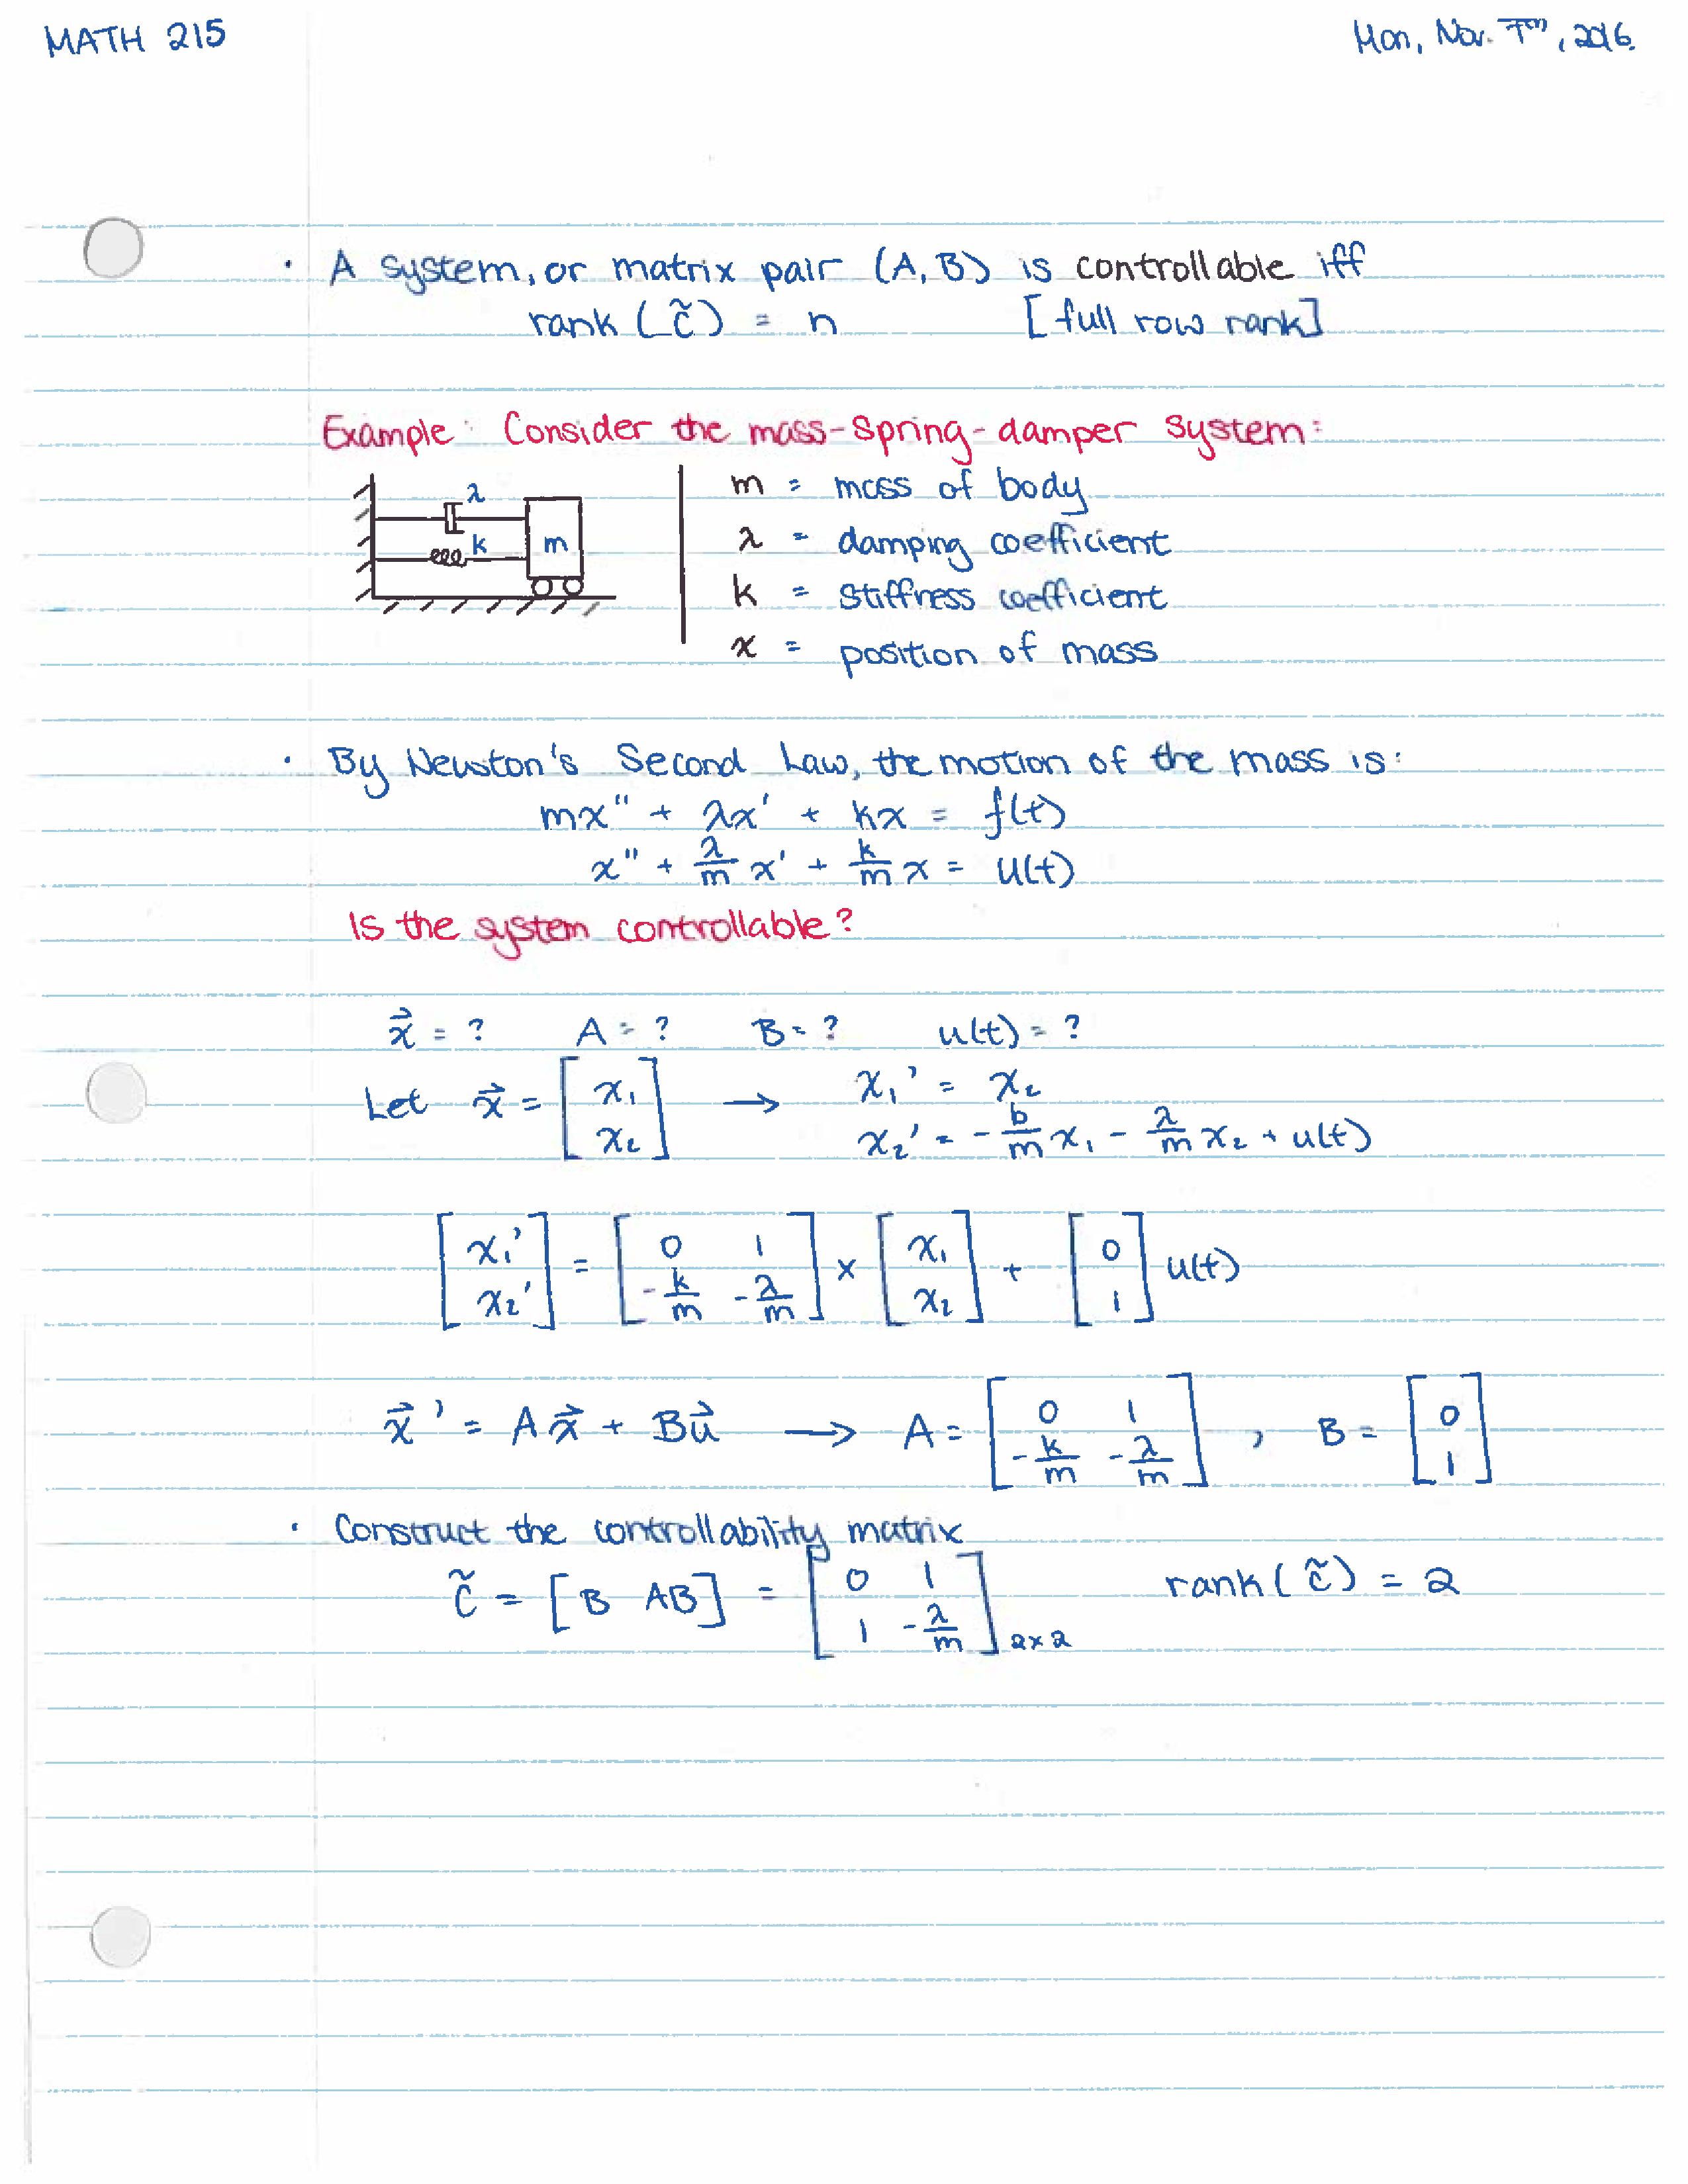 MATH 215
Mon, Nov. 7th, 2016.
· A system, or matrix pair (A, B) is controllable iff
rank (C̃) = n [full row rank]
Example: Consider the mass-spring-damper system:
λ
k
m
m = mass of body
λ = damping coefficient
k = stiffness coefficient
x = position of mass
· By Newton's Second Law, the motion of the mass is:
mx'' + λx' + kx = f(t)
x'' + λ/m x' + k/m x = u(t)
Is the system controllable?
x⃗ = ? A = ? B = ? u(t) = ?
Let x⃗ = [x₁; x₂] → x₁' = x₂
x₂' = - b/m x₁ - λ/m x₂ + u(t)
[x₁'; x₂'] = [0 1; -k/m -λ/m] × [x₁; x₂] + [0; 1] u(t)
x⃗' = Ax⃗ + Bu⃗ → A = [0 1; -k/m -λ/m] , B = [0; 1]
· Construct the controllability matrix
C̃ = [B AB] = [0 1; 1 -λ/m]₂ₓ₂ rank(C̃) = 2